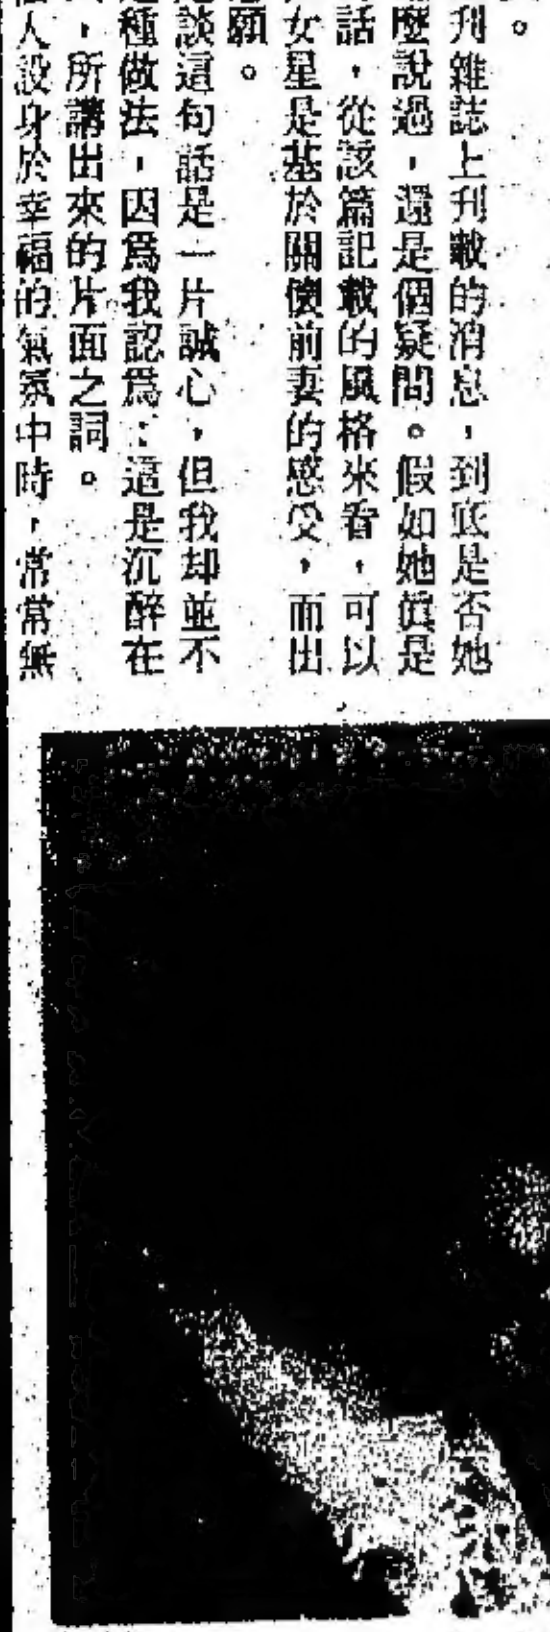 。
刊雜誌上刊載的消息，到底是否她
麼說過，還是個疑問。假如她眞是
話，從該篇記載的風格來看，可以
女星是基於關懷前妻的感受，而出
願。
談這句話是一片誠心，但我却並不
種做法，因爲我認爲：這是沉醉在
，所講出來的片面之詞。
人設身於幸福的氣氛中時，常常無